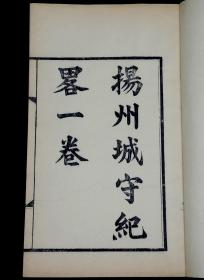 揚州城守紀
畧一卷